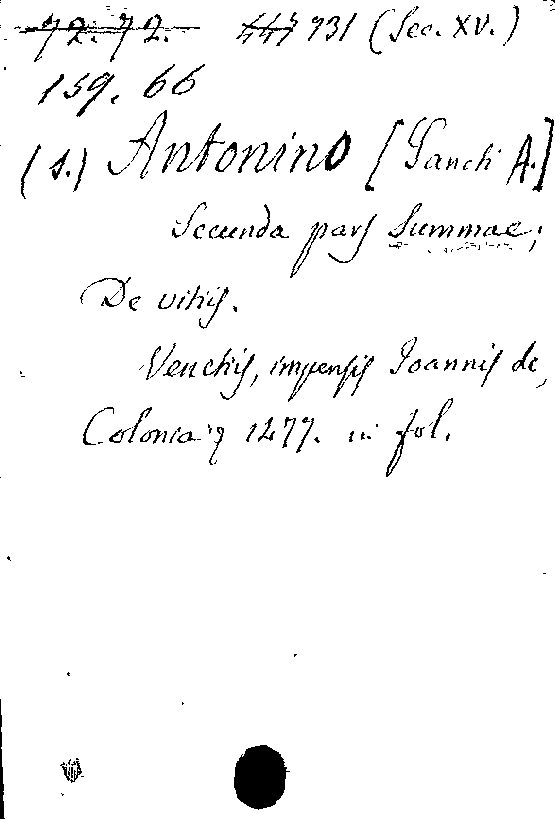 72. 72. 447 931 (Sec. XV.)
159. 66
(S.) Antonino [Sancti A.]
Secunda pars Summae;
De vitiis.
Venetiis, impensis Joannis de,
Colonia 1477. in fol.